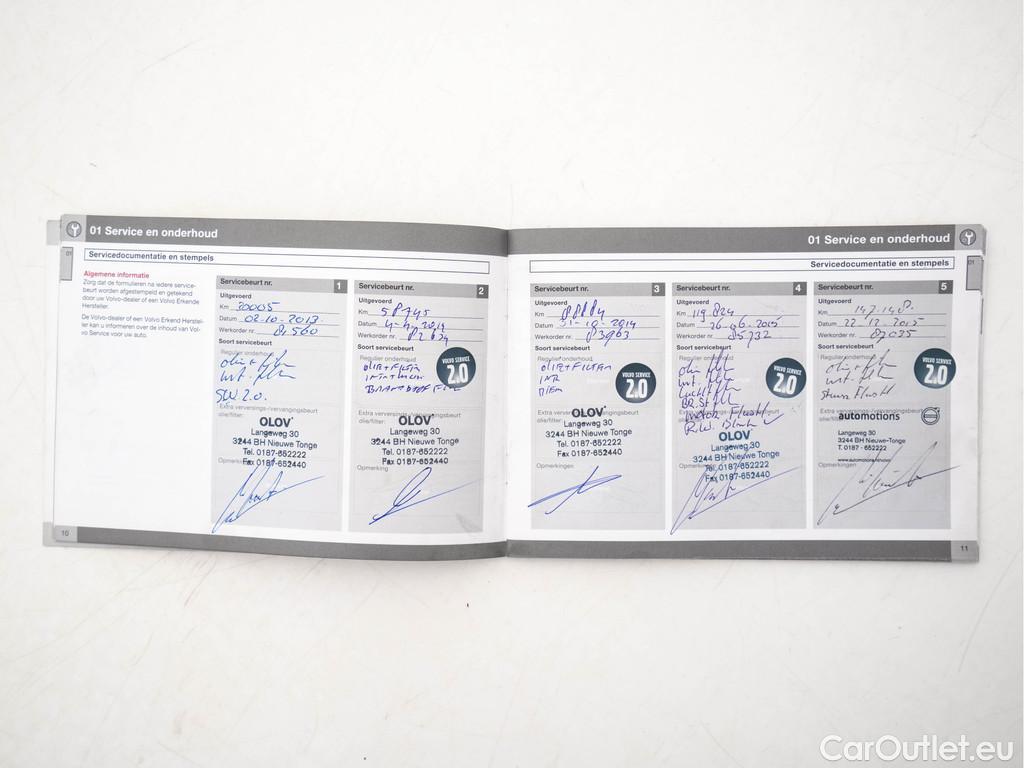 01 Service en onderhoud
01
Servicedocumentatie en stempels
Algemene informatie
Zorg dat de formulieren na iedere service-
beurt worden afgestempeld en getekend
door uw Volvo-dealer of een Volvo Erkende
Hersteller.
De Volvo-dealer of een Volvo Erkend Herstel-
ler kan u informeren over de inhoud van Vol-
vo Service voor uw auto.
Servicebeurt nr. 1
Uitgevoerd
Km 30005
Datum 02-10-2013
Werkorder nr. 81560
Soort servicebeurt
Regulier onderhoud
olie + filt
int. filt
SW 2.0.
Extra verversings-/vervangingsbeurt
olie/filter:
OLOV
Langeweg 30
3244 BH Nieuwe Tonge
Tel. 0187-652222
Fax 0187-652440
Opmerking
Servicebeurt nr. 2
Uitgevoerd
Km 58745
Datum 4-4-2014
Werkorder nr. 82634
Soort servicebeurt
Regulier onderhoud
OLIE + FILTER
VOLVO SERVICE
2.0
Extra verversings-/vervangingsbeurt
olie/filter:
OLOV
Langeweg 30
3244 BH Nieuwe Tonge
Tel. 0187-652222
Fax 0187-652440
Opmerking
10
01 Service en onderhoud
01
Servicedocumentatie en stempels
Servicebeurt nr. 3
Uitgevoerd
Km 88884
Datum 31-10-2014
Werkorder nr. 83963
Soort servicebeurt
Regulier onderhoud
OLIE + FILTER
VOLVO SERVICE
2.0
Extra verversings-/vervangingsbeurt
olie/filter:
OLOV
Langeweg 30
3244 BH Nieuwe Tonge
Tel. 0187-652222
Fax 0187-652440
Opmerking
Servicebeurt nr. 4
Uitgevoerd
Km 119.824
Datum 26-06-2015
Werkorder nr. 85732
Soort servicebeurt
VOLVO SERVICE
2.0
motor Flush
OLOV
Langeweg 30
3244 BH Nieuwe Tonge
Tel. 0187-652222
Fax 0187-652440
Servicebeurt nr. 5
Uitgevoerd
Km 147.148
Datum 22-12-2015
Werkorder nr. 87035
Soort servicebeurt
Regulier onderhoud
VOLVO SERVICE
2.0
Extra verversings-/vervangingsbeurt
automotions
Langeweg 30
3244 BH Nieuwe-Tonge
T. 0187 - 652222
Opmerking
11
CarOutlet.eu